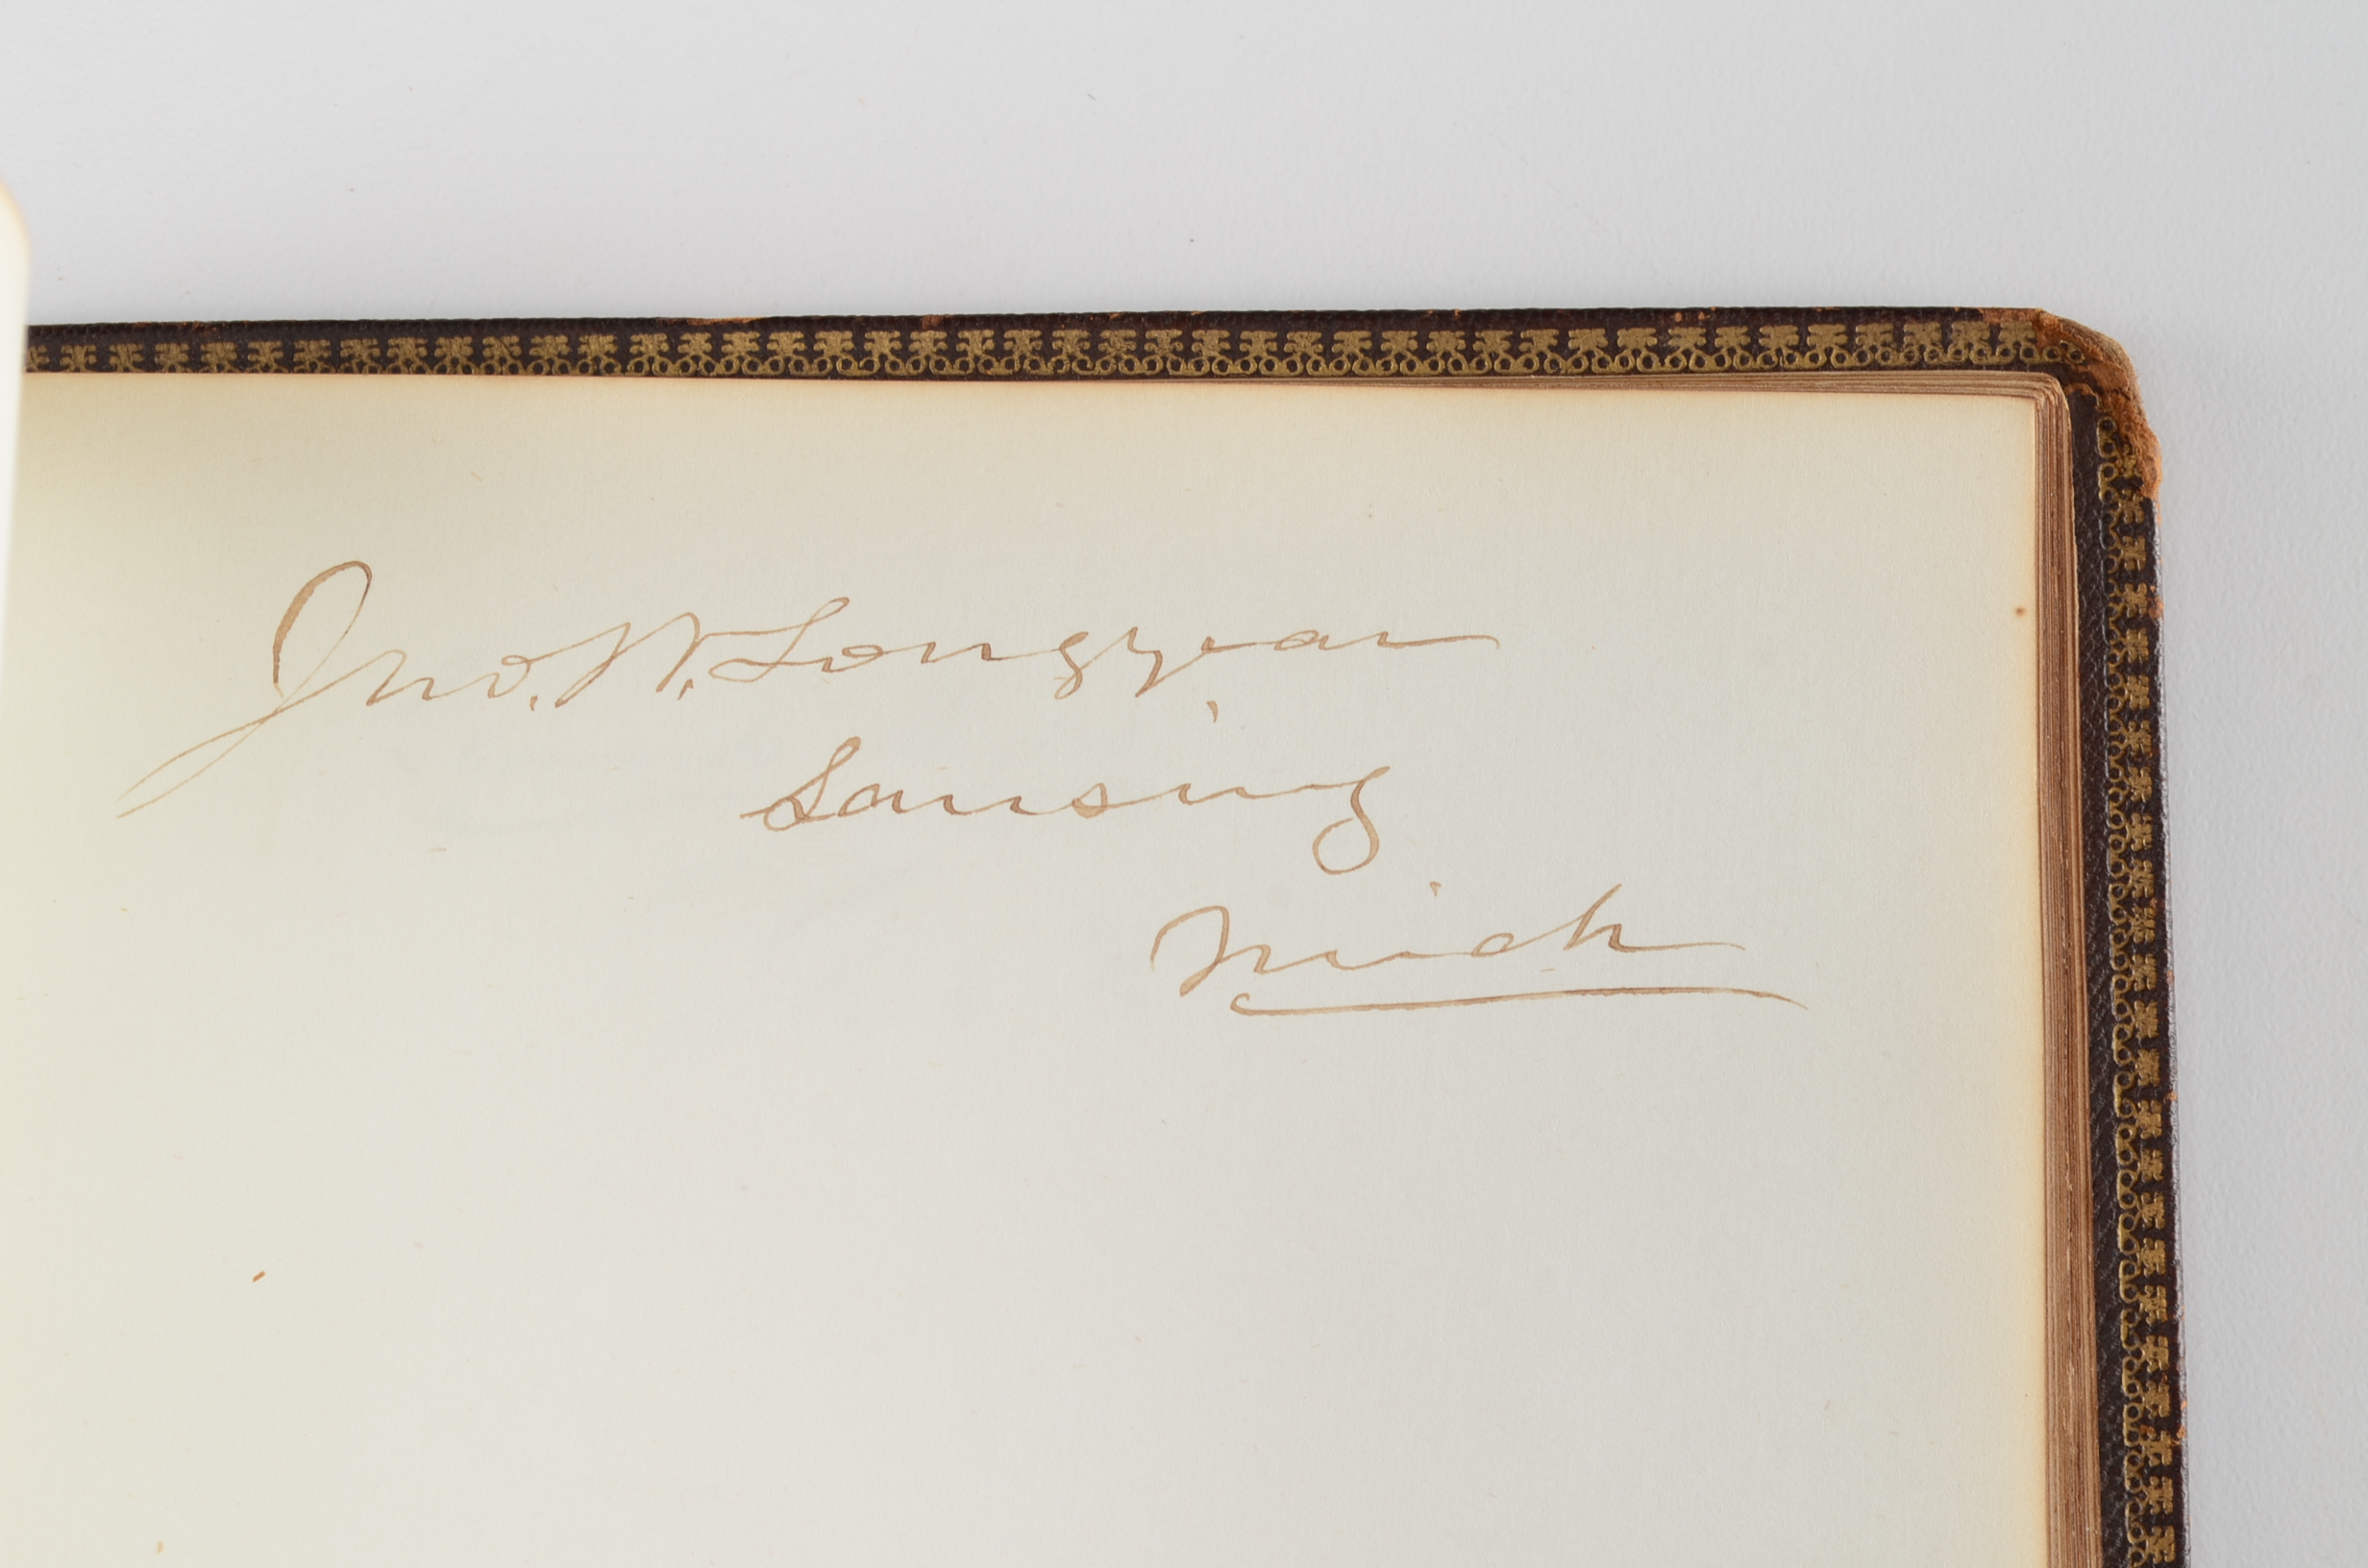 Jno. W. Longyear,
Lansing
Mich